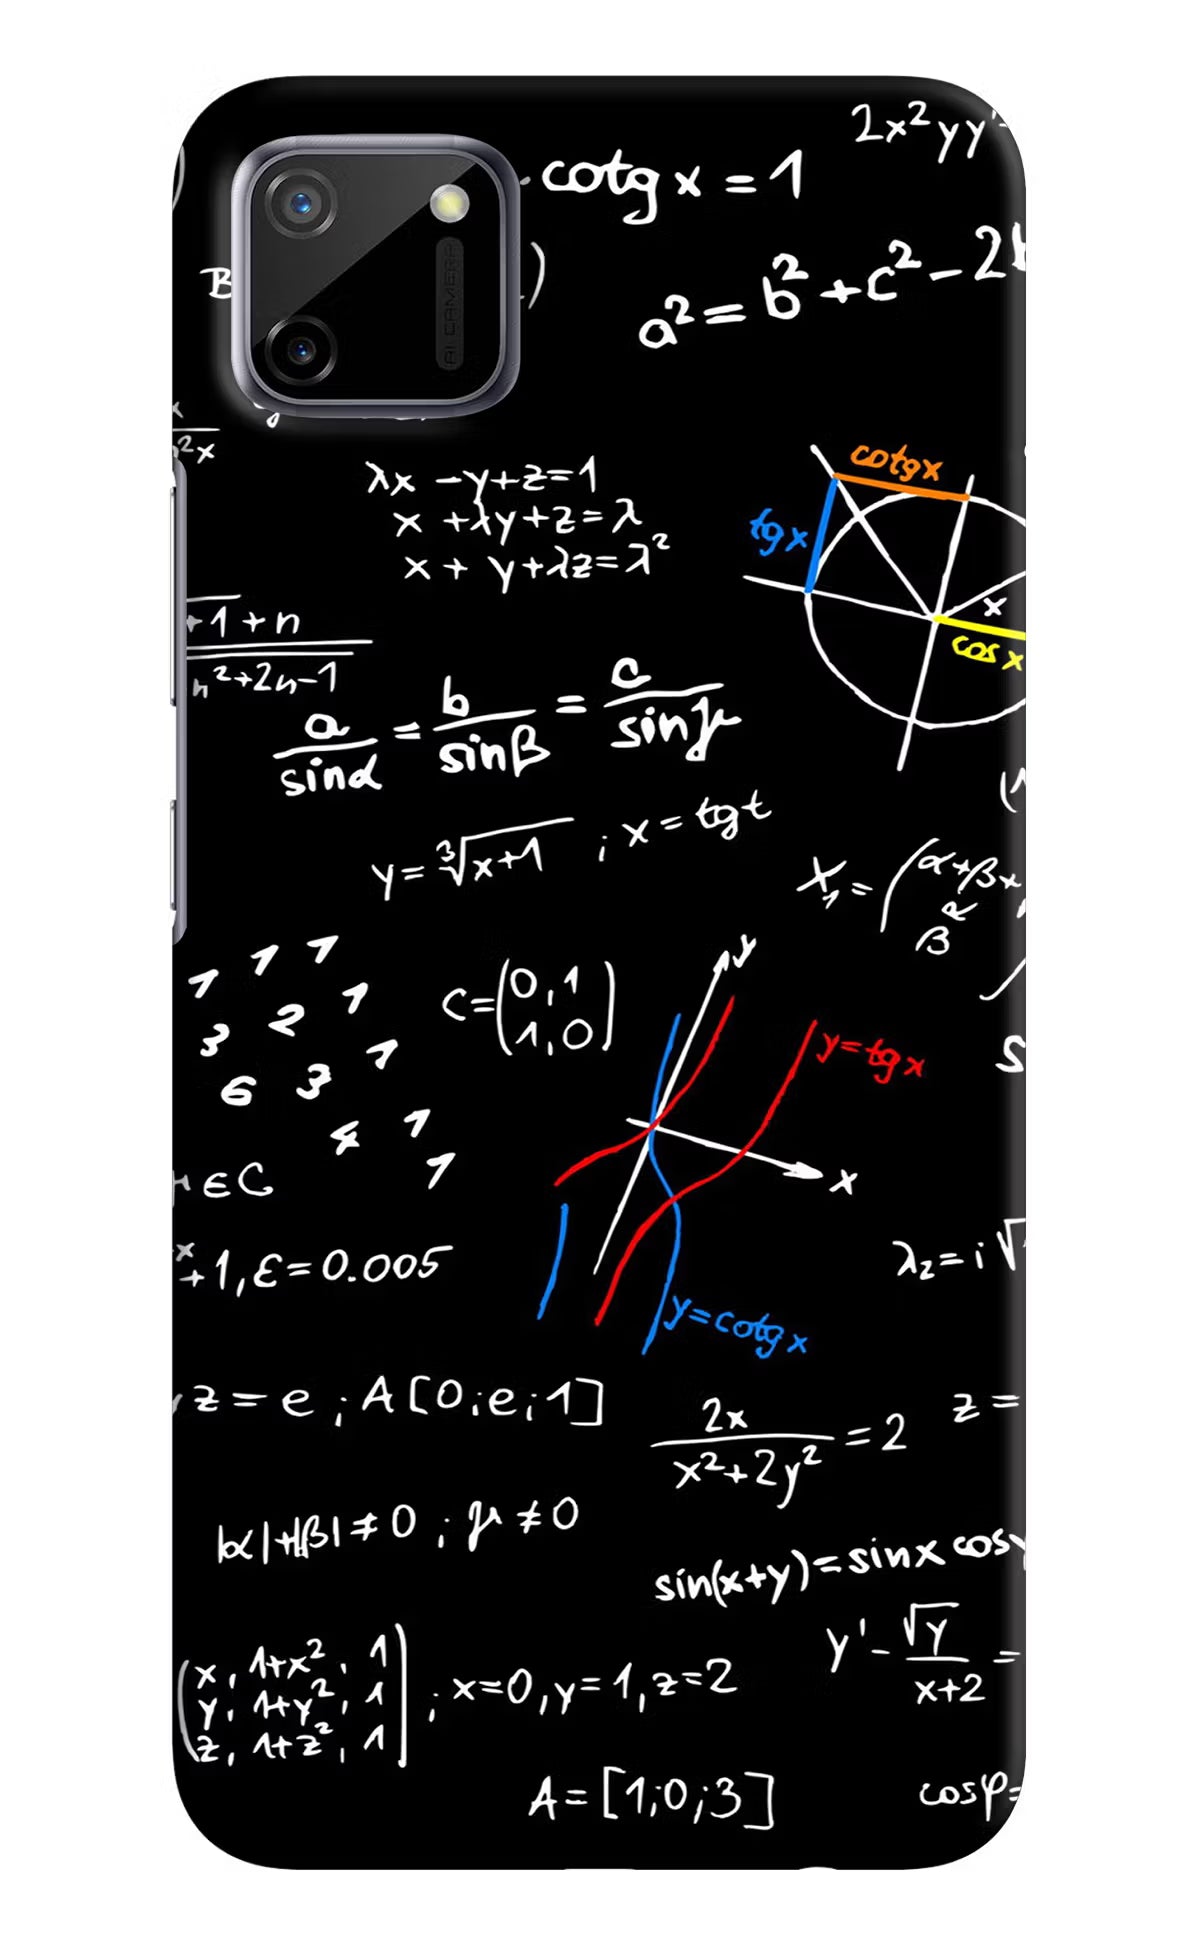 2x²yy'
cotg x = 1
a² = b² + c² - 2
B
AI CAMERA
λx - y + z = 1
x + λy + z = λ
x + y + λz = λ²
cotg x
tg x
x
cos x
+1 + n
n² + 2n - 1
a/sinα = b/sinβ = c/sinγ
y = ∛(x+1) ; x = tg t
X₁ = (α+β+
β
1 1 1
3 2 1
6 3 1
4 1
1
C = (0, 1
1, 0)
y
y = tg x
x
y = cotg x
∈ C
+1, ε = 0.005
λ₂ = i√
z = e ; A[0; e; 1]
2x/(x² + 2y²) = 2
z =
|α| + |β| ≠ 0 ; μ ≠ 0
sin(x+y) = sinx cosy
y' - √y/(x+2) =
(x, 1+x², 1
y, 1+y², 1
z, 1+z², 1) ; x=0, y=1, z=2
A = [1; 0; 3]
cosφ =